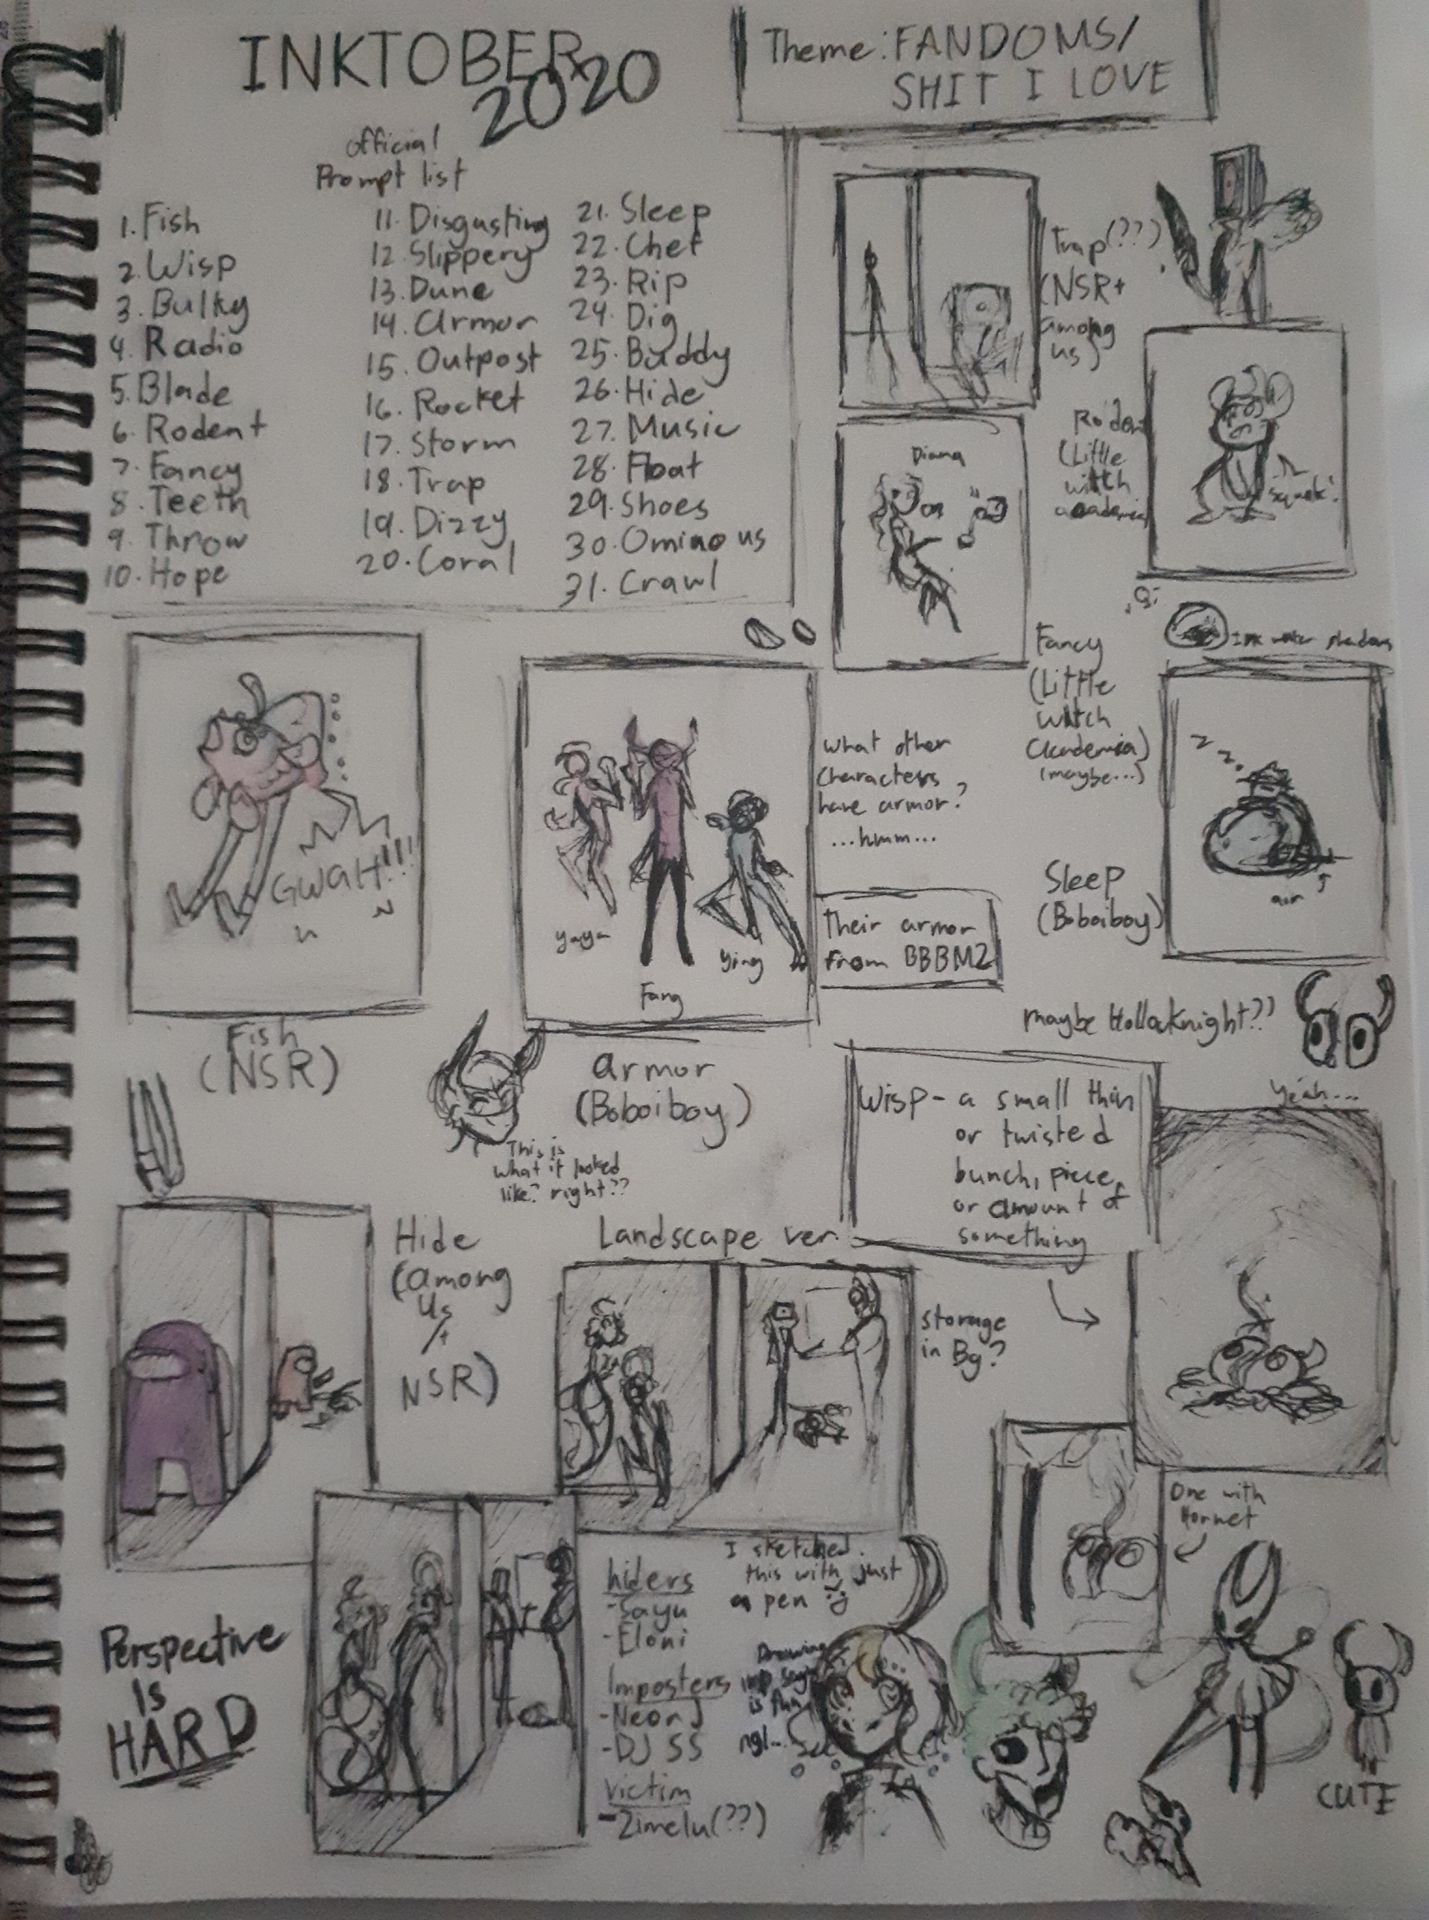 INKTOBER
2020
Theme: FANDOMS/
SHIT I LOVE
official
Prompt list
1. Fish
2. Wisp
3. Bulky
4. Radio
5. Blade
6. Rodent
7. Fancy
8. Teeth
9. Throw
10. Hope
11. Disgusting
12. Slippery
13. Dune
14. armor
15. Outpost
16. Rocket
17. Storm
18. Trap
19. Dizzy
20. Coral
21. Sleep
22. Chef
23. Rip
24. Dig
25. Buddy
26. Hide
27. Music
28. Float
29. Shoes
30. Ominous
31. Crawl
Trap (??)
(NSR+
among
us)
Rodent
(Little
witch
academia)
squeak!
Diana
Fancy
(Little
witch
academia)
(maybe...)
Ink water shadows
zzz
air
Sleep
(Boboiboy)
GWAH!!!
Fish
(NSR)
yaya
Fang
Ying
armor
(Boboiboy)
what other
characters
have armor?
...hmm...
Their armor
from BBBM2
This is
what it looked
like? right??
maybe Hollow Knight??
yeah...
Wisp - a small thin
or twisted
bunch, piece,
or amount of
something
Hide
(among
us
+
NSR)
Landscape ver.
storage
in Bg?
One with
Hornet
Perspective
is
HARD
I sketched
this with just
a pen
hiders
- Sayu
- Eloni
Imposters
- Neon J
- DJ SS
victim
- Zimelu (??)
Drawing
imp sayu
is fun
ngl...
CUTE